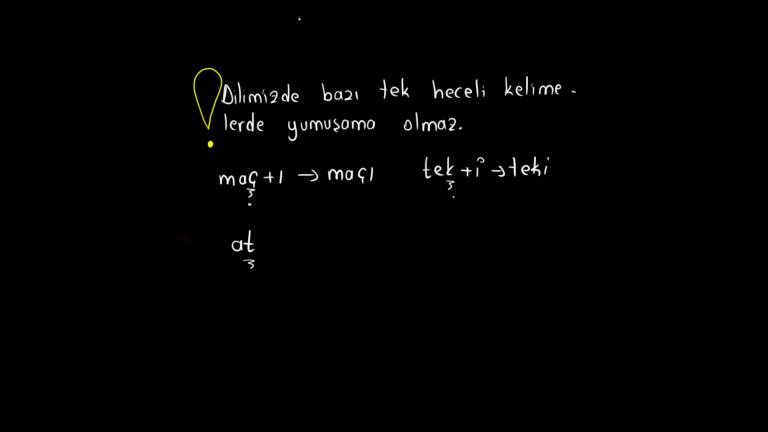 ! Dilimizde bazı tek heceli kelime-
lerde yumuşama olmaz.
maç+ı → maçı tek+i → teki
at